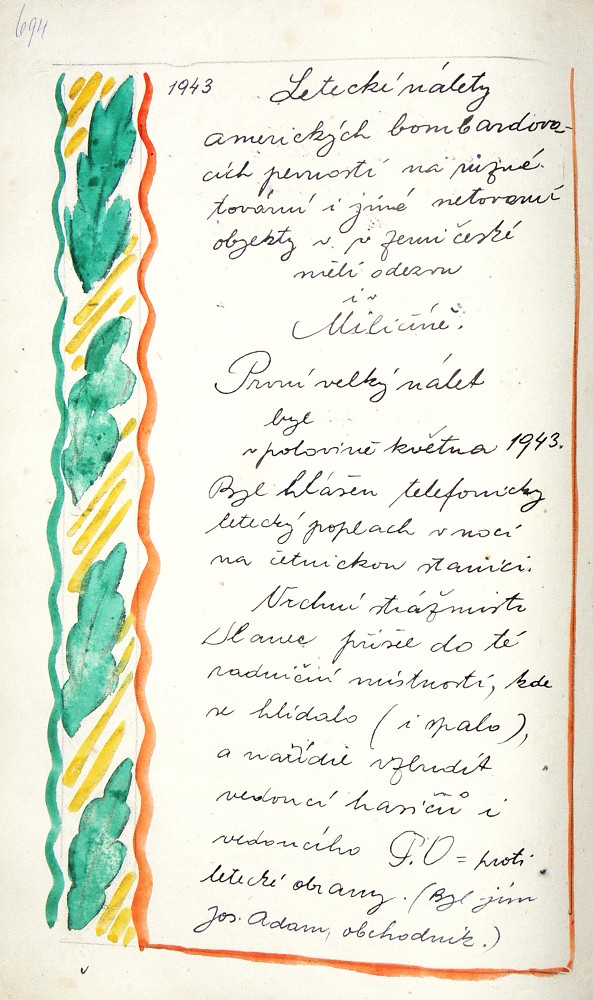 694
1943 Letecké nálety
amerických bombardova-
cích pevností na různé
tovární i jiné netovarní
objekty v zemi české
měli odezvu
i v
Miličíně.
První velký nálet
byl
v polovině května 1943.
Byl hlášen telefonicky
letecký poplach v noci
na četnickou stanici.
Vrchní strážmistr
přišel do té
radniční místnosti, kde
se hlídalo (i spalo),
a nařídil vzbudit
vedoucí hasičů i
vedoucího P.O = proti
letecké obrany. (Byl jím
Jos. Adam, obchodník.)